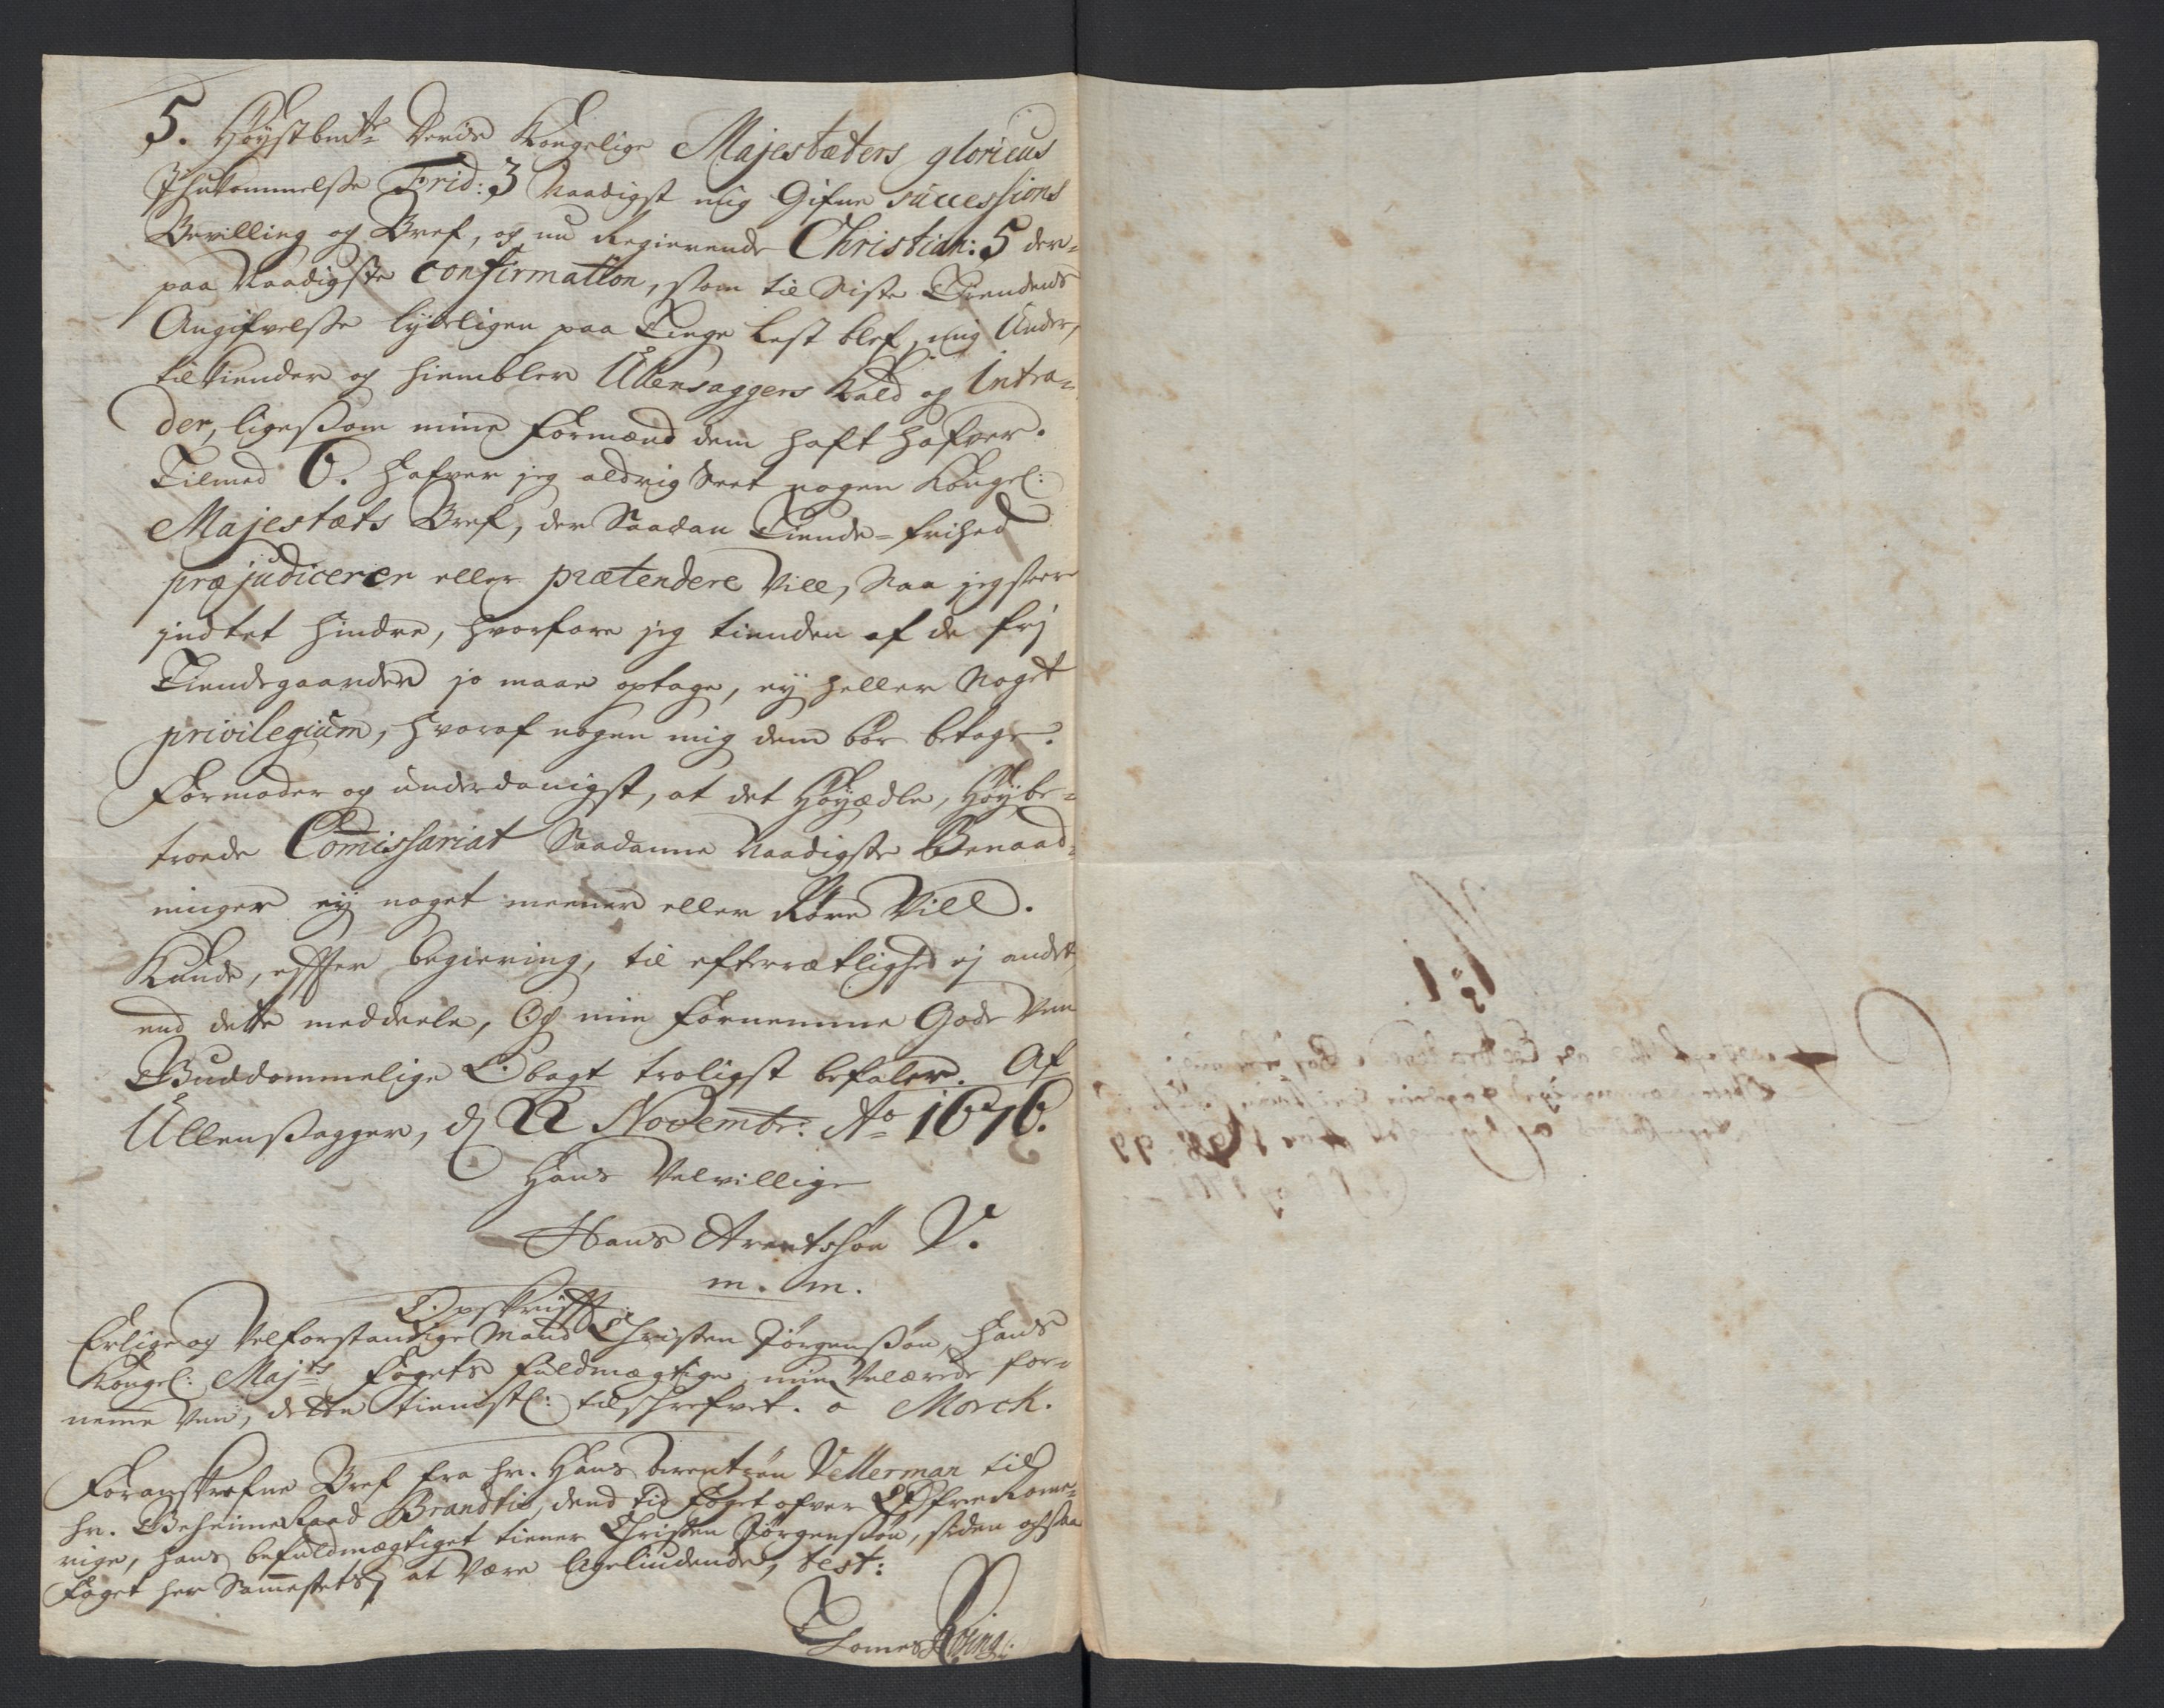 5. Høystbmte Deris Kongelige Majestæters gloricus
Ihukommelse Frid: 3 Naadigst mig Gifne successions
Bevilling og Bref, og nu Regierende Christian: 5 der-
paa Naadigste confirmation, som til Siste Tiendens
Angifvelse lydeligen paa Tinge lest blef, mig Under,
tilkiender og hiembler Ullensaggers Kald og Intra-
der, ligesom mine formænd dem haft hafver.
Tilmed 6. hafver jeg aldrig Seet nogen Kongel:
Majestæts Bref, der Saadan Tiende-frihed
præjudicerer eller prætendere Vill, Naa jeg
indtet hindre, hvorfore jeg tienden af de frj
Tiendegaarder jo maae optage, ey heller Noget
privilegium, hvoraf nogen mig dem bør betage.
Formoder og underdanigst, at det Høyædle, Høybe-
troede Comissariat Saadanne Naadigste Benaad-
ninger ey noget meener eller Røre Vill.
Kunde, effter begiering, til efterrætlighed ej andet
end dette meddeele, Og min fornemme Gode Ven
Guddommelige Obagt troligst befaler. Af
Ullensagger, d 22 Novembr: Ao 1676.
Hans Velvillige
Hans Arentsøn V.
m. m.
Opskrifft:
Erlige og Velforstandige Mand Christen Jørgensøn, Hans
Kongel: Majts fogets fuldmægtige, min Velærede for-
neme Ven, dette tienistl: tilschrefvet. a Morck.
Foranskrefne Bref fra hr. Hans Arentsøn Vellerman til
hr. Geheime Raad Brandtis, dend tid foget ofver Øfre Rome-
rige, hans befuldmægtiget tiener Christen Jørgensøn, siden ochsaa
foget her Sammestets, at Være ligeliudende, test:
Tomes Rosing.